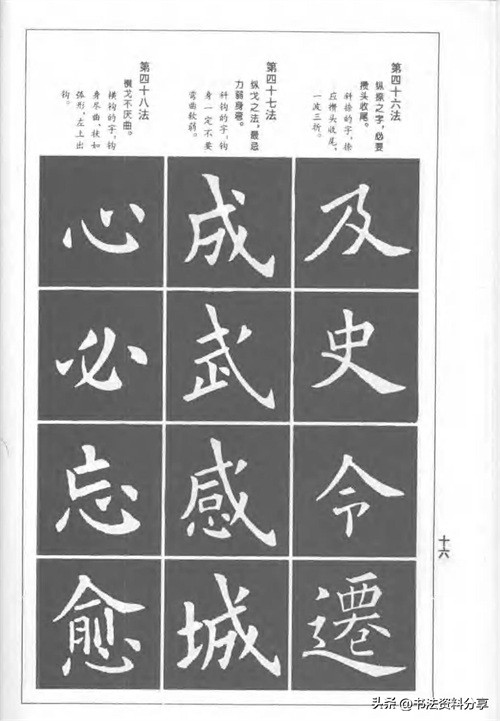 第四十六法
纵捺之字，必要
攒头收尾。
斜捺的字，捺
应攒头收尾，
一波三折。
及
史
令
遷
第四十七法
纵戈之法，最忌
力弱身弯。
斜钩的字，钩
身一定不要
弯曲软弱。
成
武
感
城
第四十八法
横戈不厌曲。
横钩的字，钩
身尽曲，状如
弧形，左上出
钩。
心
必
忘
愈
十六
头条 @书法资料分享